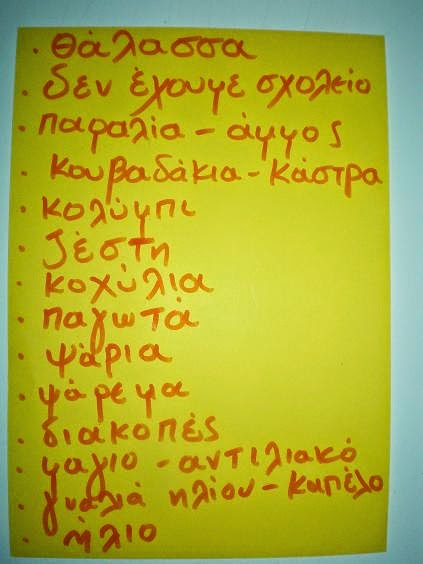 · θάλασσα
· δεν έχουμε σχολείο
· παραλία - άμμος
· κουβαδάκια - κάστρα
· κολύμπι
· ζέστη
· κοχύλια
· παγωτά
· ψάρια
· ψάρεμα
· διακοπές
· μαγιο - αντιλιακό
· γυαλιά ηλίου - καπέλο
· ήλιο